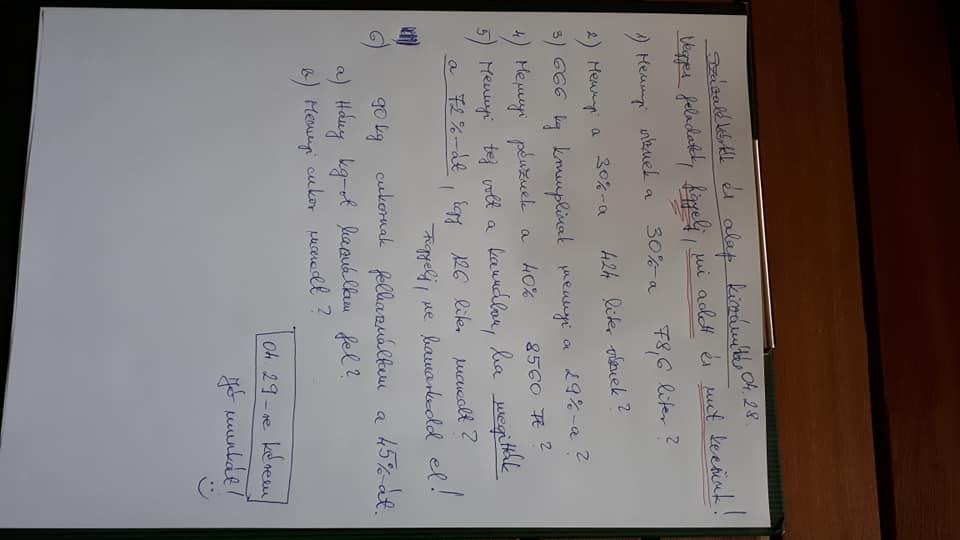 Százalékérték és alap kiszámítás
04.28.
Vegyes feladatok, figyelj, mi adott és mit keresünk!
1) Mennyi víznek a 30%-a 78,6 liter?
2) Mennyi a 30%-a 424 liter víznek?
3) 666 kg krumplinak mennyi a 29%-a?
4) Mennyi pénznek a 40% 8560 Ft?
5) Mennyi tej volt a kannában, ha megitták
a 72%-át, így 126 liter maradt?
Figyelj, ne hamarkodd el!
6) 90 kg cukornak felhasználtam a 45%-át.
a) Hány kg-ot használtam fel?
b) Mennyi cukor maradt?
04.29-re kérem
Jó munkát!